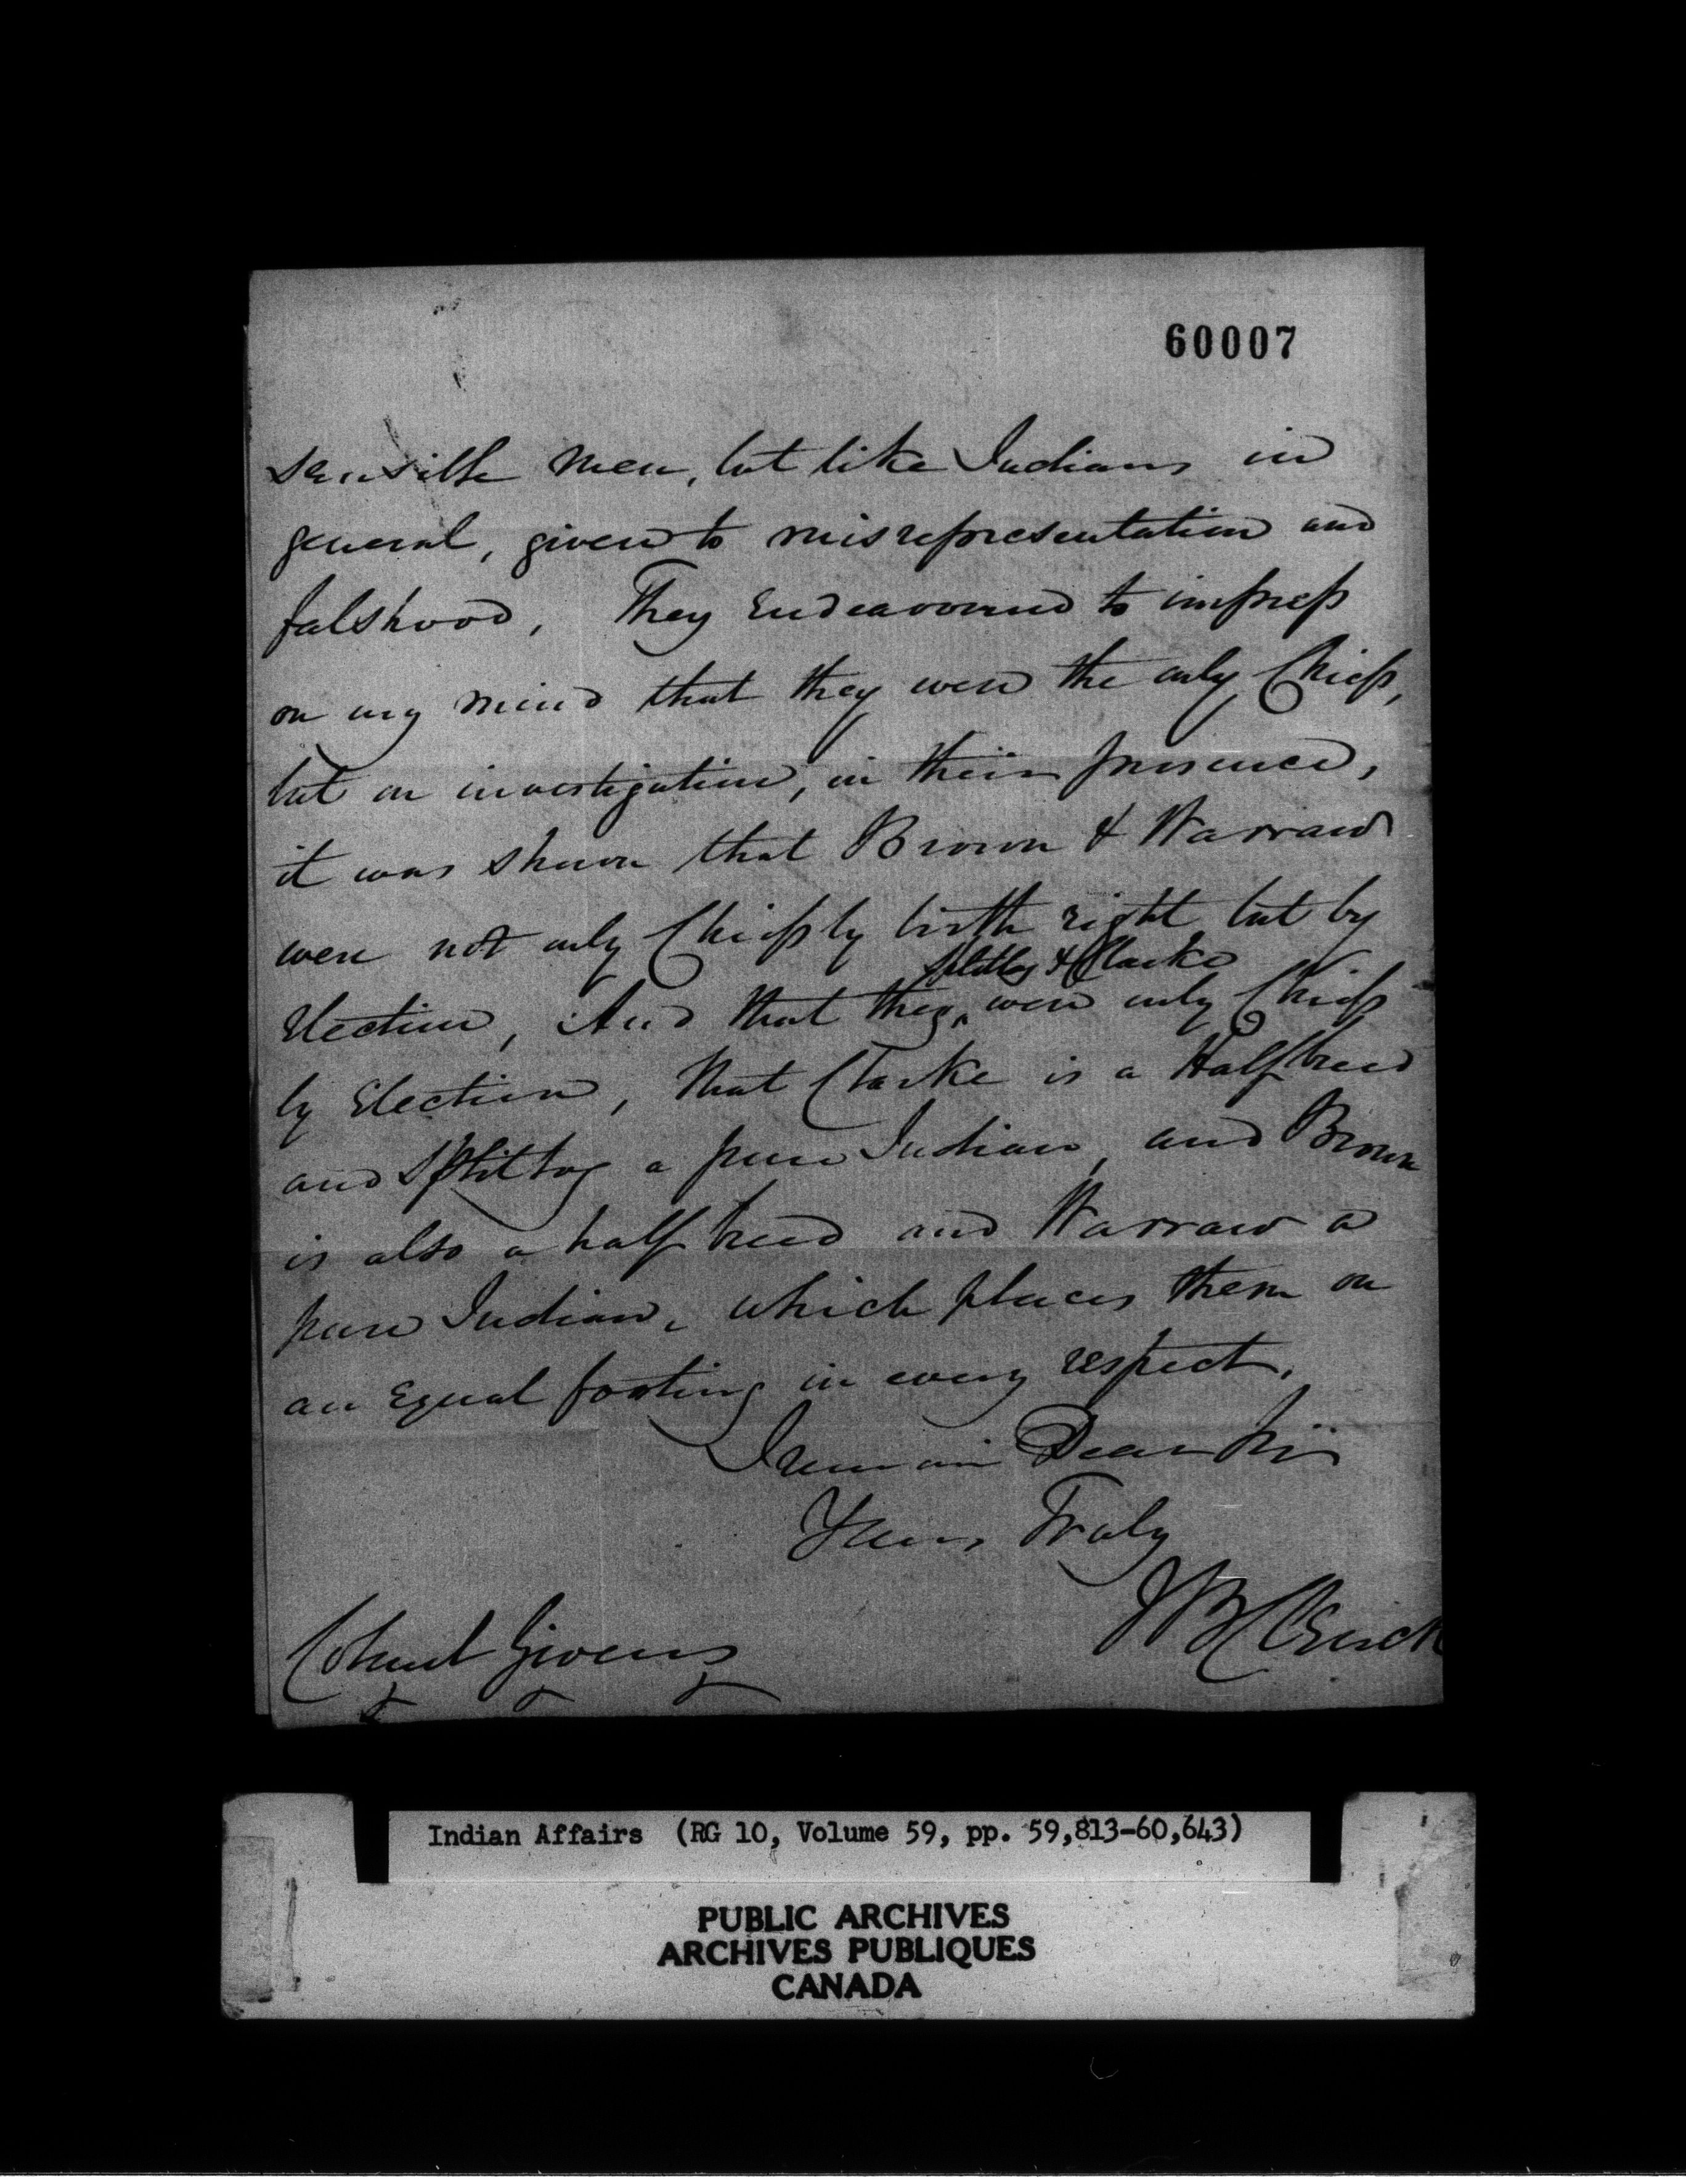 60007
sensible men, but like Indians in
general, given to misrepresentation and
falshood, They Endeavoured to impress
on my mind that they were the only Chiefs,
but on investigation, in their presence,
it was shewn that Brown & Warraw
were not only Chiefs by birth right but by
Splitlog & Clarke
Election, And that they ^ were only Chiefs
by Election, that Clarke is a Half breed
and Splitlog a pure Indian, and Brown
is also a half breed and Warraw a
pure Indian, which places them on
an Equal footing in every respect.
I remain Dear Sir
Yours Truly
J B Clench
Colonel Givens
Indian Affairs (RG 10, Volume 59, pp. 59,813-60,643)
PUBLIC ARCHIVES
ARCHIVES PUBLIQUES
CANADA